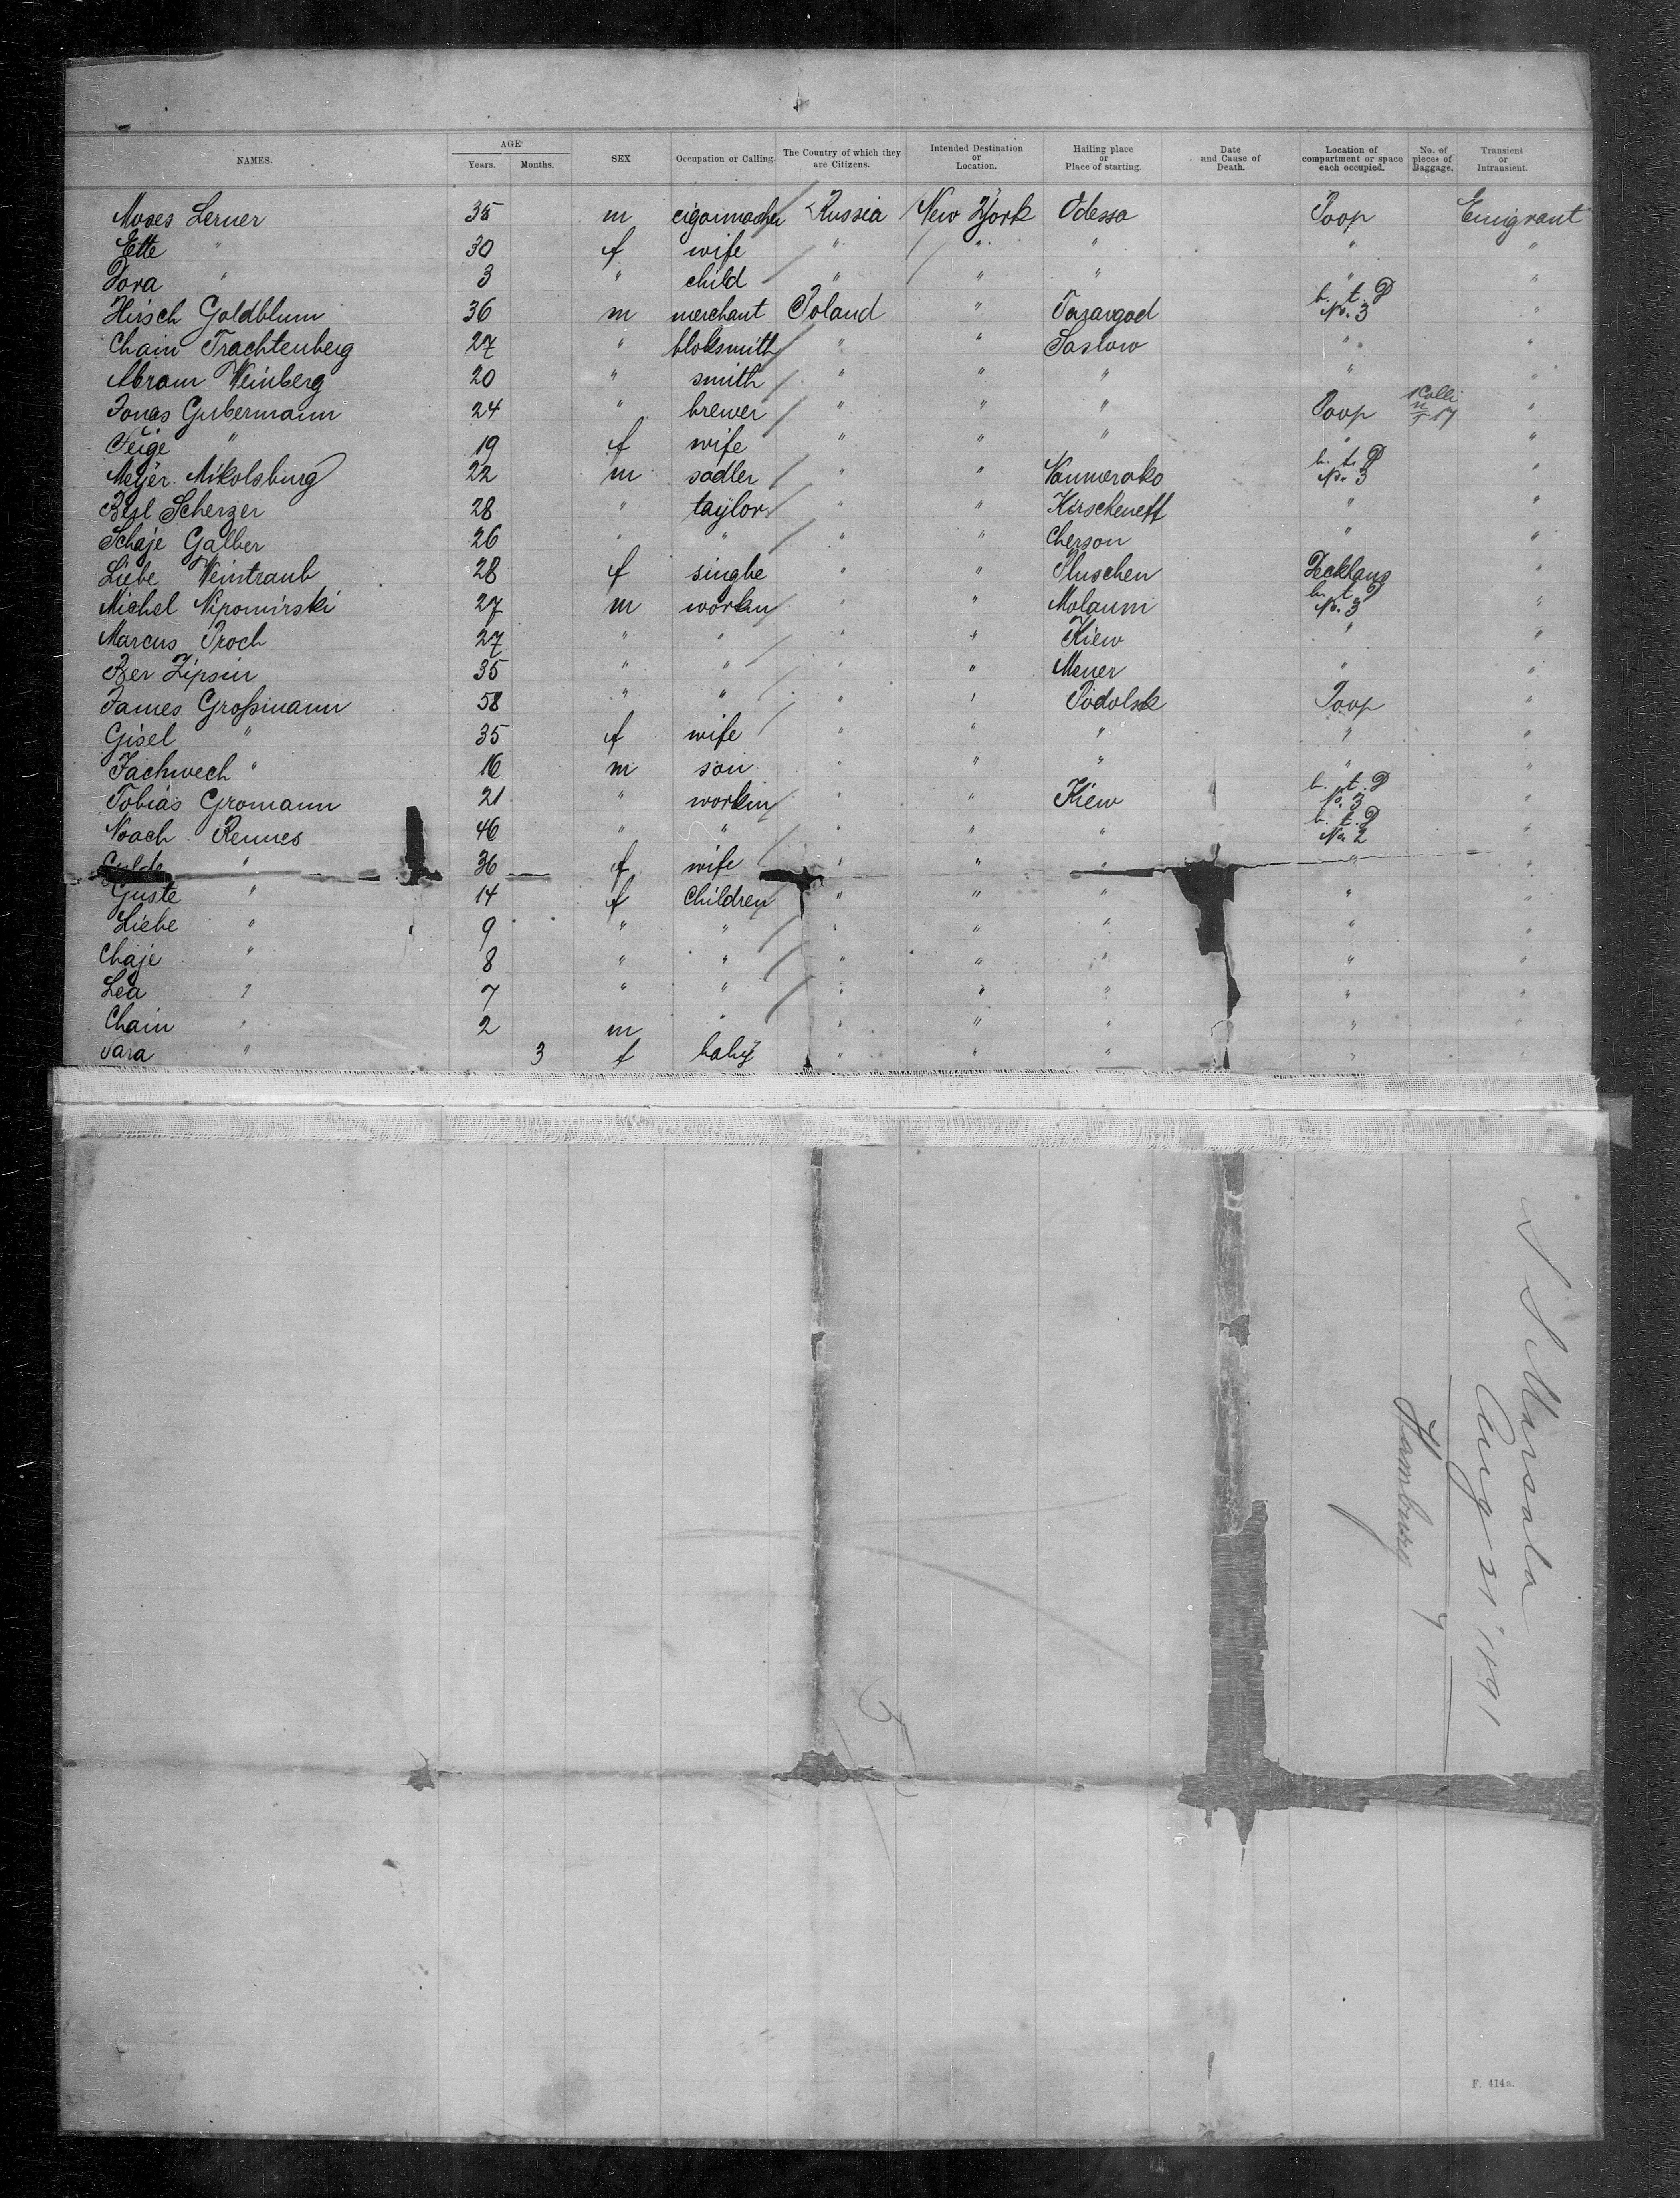 NAMES. AGE Years. Months. SEX Occupation or Calling. The Country of which they are Citizens. Intended Destination or Location. Hailing place or Place of starting. Date and Cause of Death. Location of compartment or space each occupied. No. of pieces of Baggage. Transient or Intransient.
Moses Lerner 35 m cigarmacher Russia New York Odessa Poop Emigrant
Ette " 30 f wife " " " " "
Dora " 3 " child " " " " "
Hirsch Goldblum 36 m merchant Poland " b. t. D No. 3 "
Chaim Trachtenberg 27 " bloksmith " " Saslow " "
Abram Weinberg 20 " smith " " " " "
Jonas Gubermann 24 " brewer " " " Poop 1 Colli "
Feige " 19 f wife " " " " "
Meyer Mikolsburg 22 m sadler " " b. t. D No. 3 "
Besl Scherzer 28 " taylor " " Kirscheneff " "
Scheje Galber 26 " " " " Cherson " "
Liebe Weintraub 28 f singhe " " Pluschen Deckhaus "
Michel Nipomirski 27 m workm " " b. t. D No. 3 "
Marcus Proch 27 " " " " Kiew " "
Ber Zipsin 35 " " " " Mener " "
James Großmann 58 " " " " Podolsk Poop "
Gisel " 35 f wife " " " " "
Jachwech " 16 m son " " " " "
Tobias Gromann 21 " workm " " Kiew b. t. D No. 3 "
Noach Rennes 46 " " " " " b. t. D No. 2 "
" 36 f wife " " " " "
Guste " 14 f Children " " " " "
Liebe " 9 " " " " " " "
Chaje " 8 " " " " " " "
Lea " 7 " " " " " " "
Chain " 2 m " " " " " "
Sara " 3 f baby " " " " "
S S Marsala
Aug 21 1891
Hamburg
F. 414a.